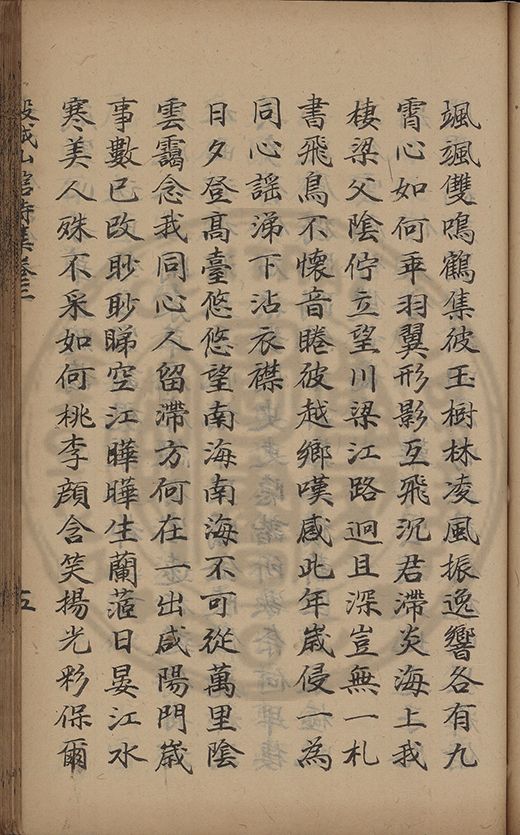 颯颯雙鳴鶴集彼玉樹林凌風振逸響各有九
霄心如何乖羽翼形影互飛沉君滯炎海上我
棲梁父陰佇立望川梁江路迥且深豈無一札
書飛鳥不懷音睠彼越鄉嘆感此年嵗侵一為
同心謡涕下沾衣襟
日夕登髙臺悠悠望南海南海不可從萬里陰
雲靄念我同心人留滯方何在一出咸陽門嵗
事數已改眇眇睇空江曄曄生蘭茝日晏江水
寒美人殊不采如何桃李顔含笑揚光彩保爾
榖城山館詩集卷三
五